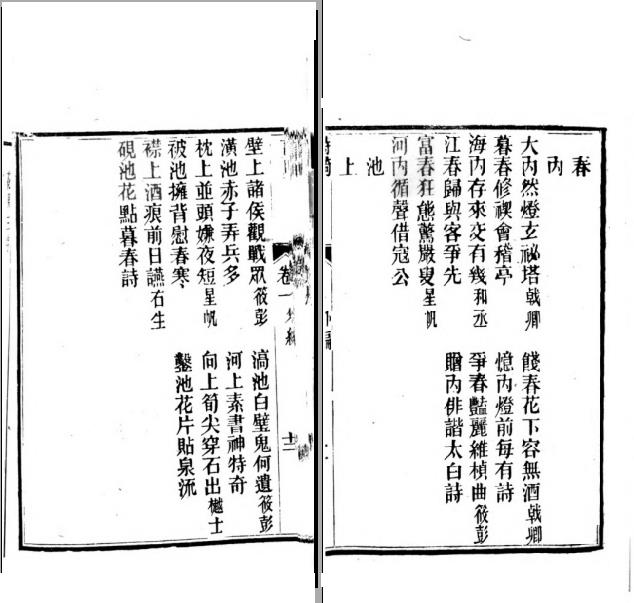 春內
大內然燈玄祕塔戟卿　餞春花下容無酒戟卿
暮春修禊會稽亭　憶內燈前每有詩
海內存來交有幾和丞　爭春豔麗維楨曲筱彭
江春歸與客爭先　贈內俳諧太白詩
富春狂態驚嚴叟星帆
河內循聲借寇公
池上
卷一
十二
壁上諸侯觀戰眾筱彭　滈池白璧鬼何遺筱彭
潢池赤子弄兵多　河上素書神特奇
枕上並頭嫌夜短星帆　向上筍尖穿石出樾士
被池擁背慰春寒　鑿池花片貼泉流
襟上酒痕前日讌右生
硯池花點暮春詩